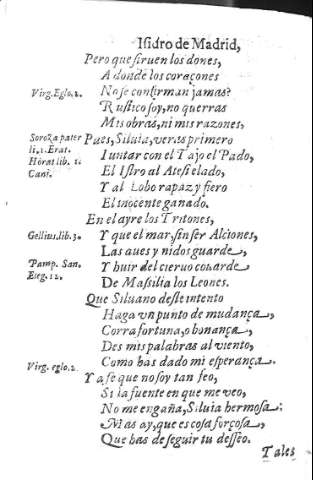 Isidro de Madrid,
Pero que siruen los dones,
A donde los coraçones
Virg. Eglo. 2.
No se confirman jamas?
Rustico soy, no querras
Mis obras, ni mis razones,
Pues, Siluia, veras primero
Iuntar con el Tajo el Pado,
El Istro al Atesi elado,
Y al Lobo rapaz y fiero
El inocente ganado.
li. 1. Erat.
Horat lib. 1.
En el ayre los Tritones,
Gellius. lib. 3.
Y que el mar, sin ser Alciones,
Las aues y nidos guarde,
Pamp. San.
Eleg. 12.
Y huir del cieruo couarde
De Massilia los Leones.
Que Siluano deste intento
Haga vn punto de mudança,
Corra fortuna, o bonança,
Des mis palabras al viento,
Como has dado mi esperança.
Virg. eglo. 2
Y a fe que no soy tan feo,
Si la fuente en que me veo,
No me engaña, Siluia hermosa:
Mas ay, que es cosa forçosa,
Que has de seguir tu desseo.
Tales